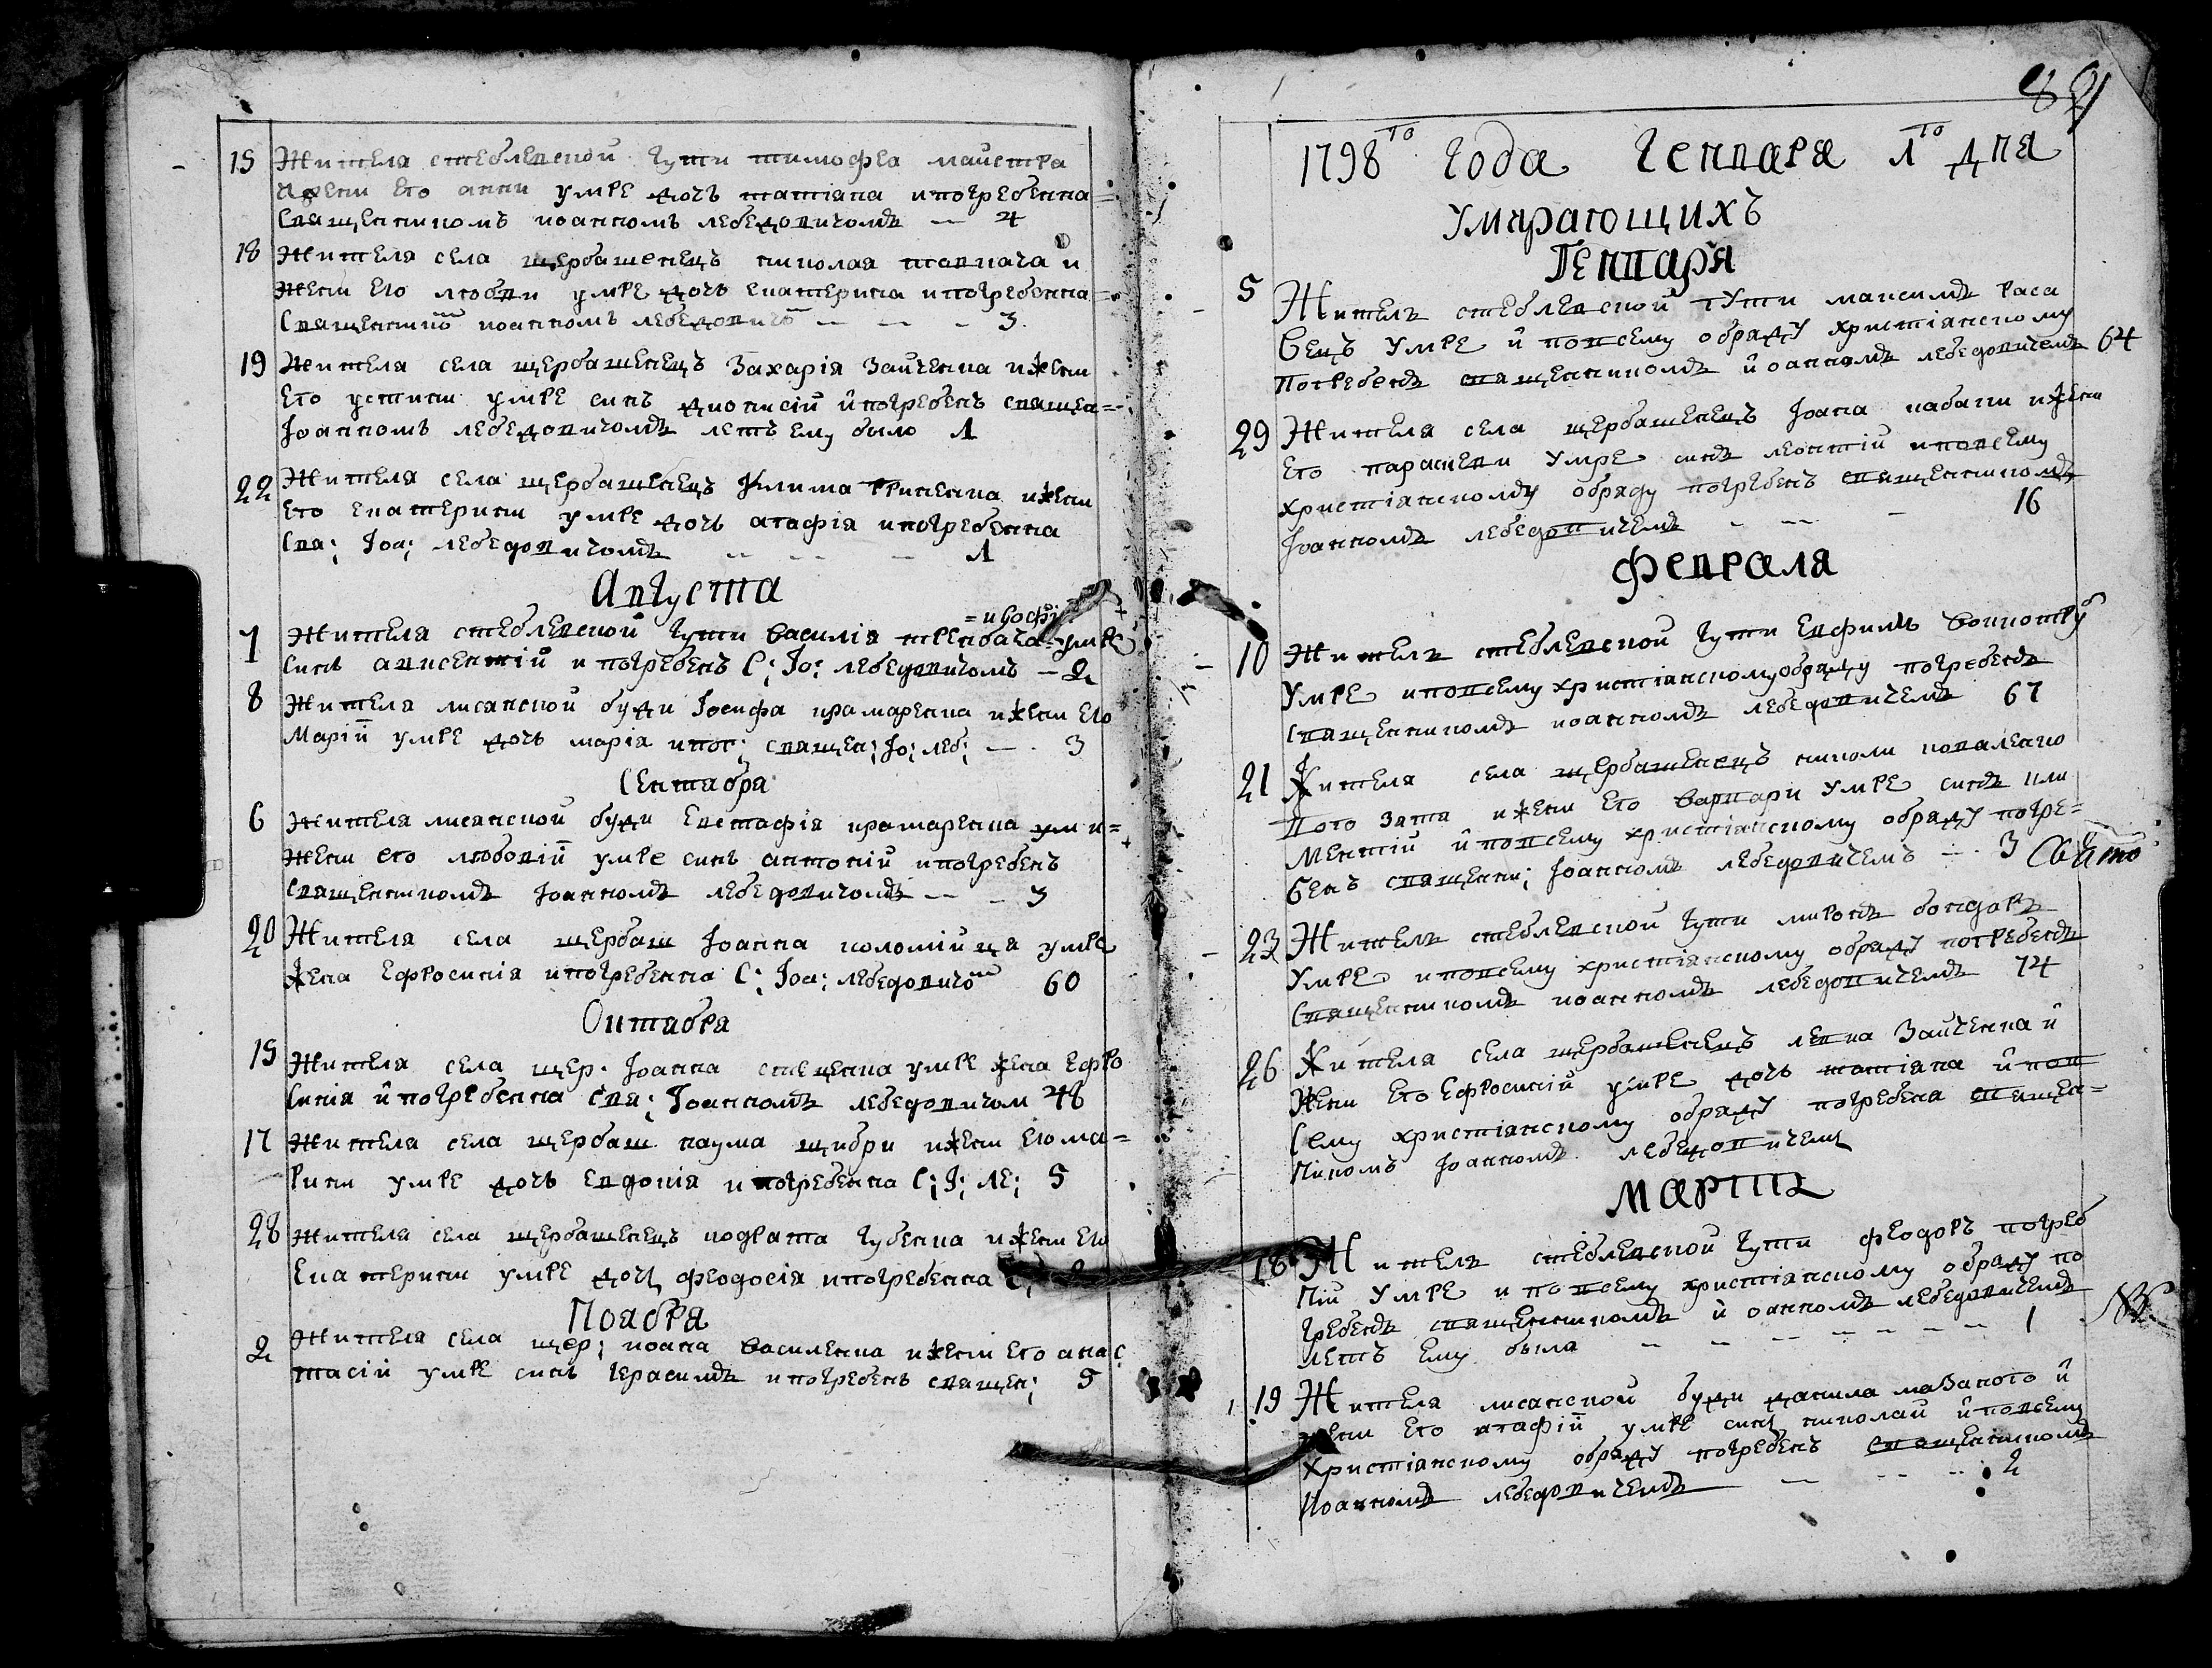 15 Жителя стеблевской гути тимофея майстра
и жени его анни умре дочь татіана и погребенна=
Священникомъ иоанномъ лебедовичомъ — 4
18 Жителя села щербашенецъ николая товкача и
жени его любви умре дочь екатерина и погребенна=
Священнико иоанномъ лебедовичо — — - 3.
19 Жителя села щербашенецъ Захарія Зайченка и жени
его устини умре синъ дионисій и погребенъ священ=
Іоанномъ лебедовичомъ летъ ему было 1
22 Жителя села щербашенецъ Клима гриненка и жени
его екатерини умре дочь агафія и погребенна
Свя; Іоа; лебедовичомъ -- -- — 1
Августа
=и Софі
1 Жителя стеблевской гути василія требача умре
Синъ авксентій и погребенъ С; Іо; лебедовичомъ — 2
8 Жителя лисянской буди Іосифа крамаренка и жени его
Маріи умре дочь марія и пог; священ; Іо; леб; — . 3
Сентября
6 жителя лисянской буди Евстафія крамаренка ум и=
жени его любовіи умре синъ антоній и погребенъ
Священникомъ Іоанномъ лебедовичомъ — - 3
20 Жителя села щербаш Іоанна коломійця умре
жена Ефросинія и погребенна С; Іоа; лебедовичо 60
Октября
15 Жителя села щер. Іоанна умре жена Ефро
Синія и погребенна Свя; Іоанномъ лебедовичом 48
17 Жителя села щербаш наума щибри и жени его ма=
Рини умре дочь Евдокія и погребенна С; І; ле; 5
28 Жителя села щербашенецъ кодрата губенка и жени его
Екатерини умре дочь феодосія и погребенна С;
Ноября
2 Жителя села щер; иоана василенка и жени его анас
тасіи умре синъ герасимъ и погребенъ священ; 5
89
1798го года Генваря 1го дня
Умирающихъ
Генваря
5 Житель стеблевской гути максимъ раса
венъ умре и по всему обряду христіанскому
Погребенъ священникомъ иоанномъ лебедовичемъ 64
29 Жителя села щербашенецъ Іоана кабаки и жени
его параскеви умре синъ леонтій и по всему
христіанскому обряду погребенъ священникомъ
Іоанномъ лебедовичемъ - -- - 16
Февраля
10 Житель стеблевской гути Евфимъ
Умре и по всему христіанскому обряду погребенъ
Священникомъ иоанномъ лебедовичемъ 67
21 Жителя села щербашенецъ николи коваленко
вого зятя и жени его варвари умре синъ кли
Ментій и по всему христіанскому обряду погре=
Бенъ священни; Іоанномъ лебедовичемъ — . 3
23 Житель стеблевской гути миронъ бондаръ
Умре и по всему христіанскому обряду погребенъ
Священникомъ иоанномъ лебедовичемъ 74
26 Жителя села щербашенецъ левка Зайченка и
Жени его Ефросиніи умре дочь татіана и пов
Сему христіанскому обряду погребена священ=
никомъ Іоанномъ лебедовичемъ
Мартъ
18 Житель стеблевской гути феодоръ погреб
ній умре и по всему христіанскому обряду по
гребенъ священникомъ иоанномъ лебедовичемъ
летъ ему была — — — — — — — 1
19 Жителя лисянской буди данила мазаного и
жени его агафіи умре синъ николай и по всему
Христіанскому обряду погребенъ священникомъ
Иоанномъ лебедовичемъ — -- -- 2